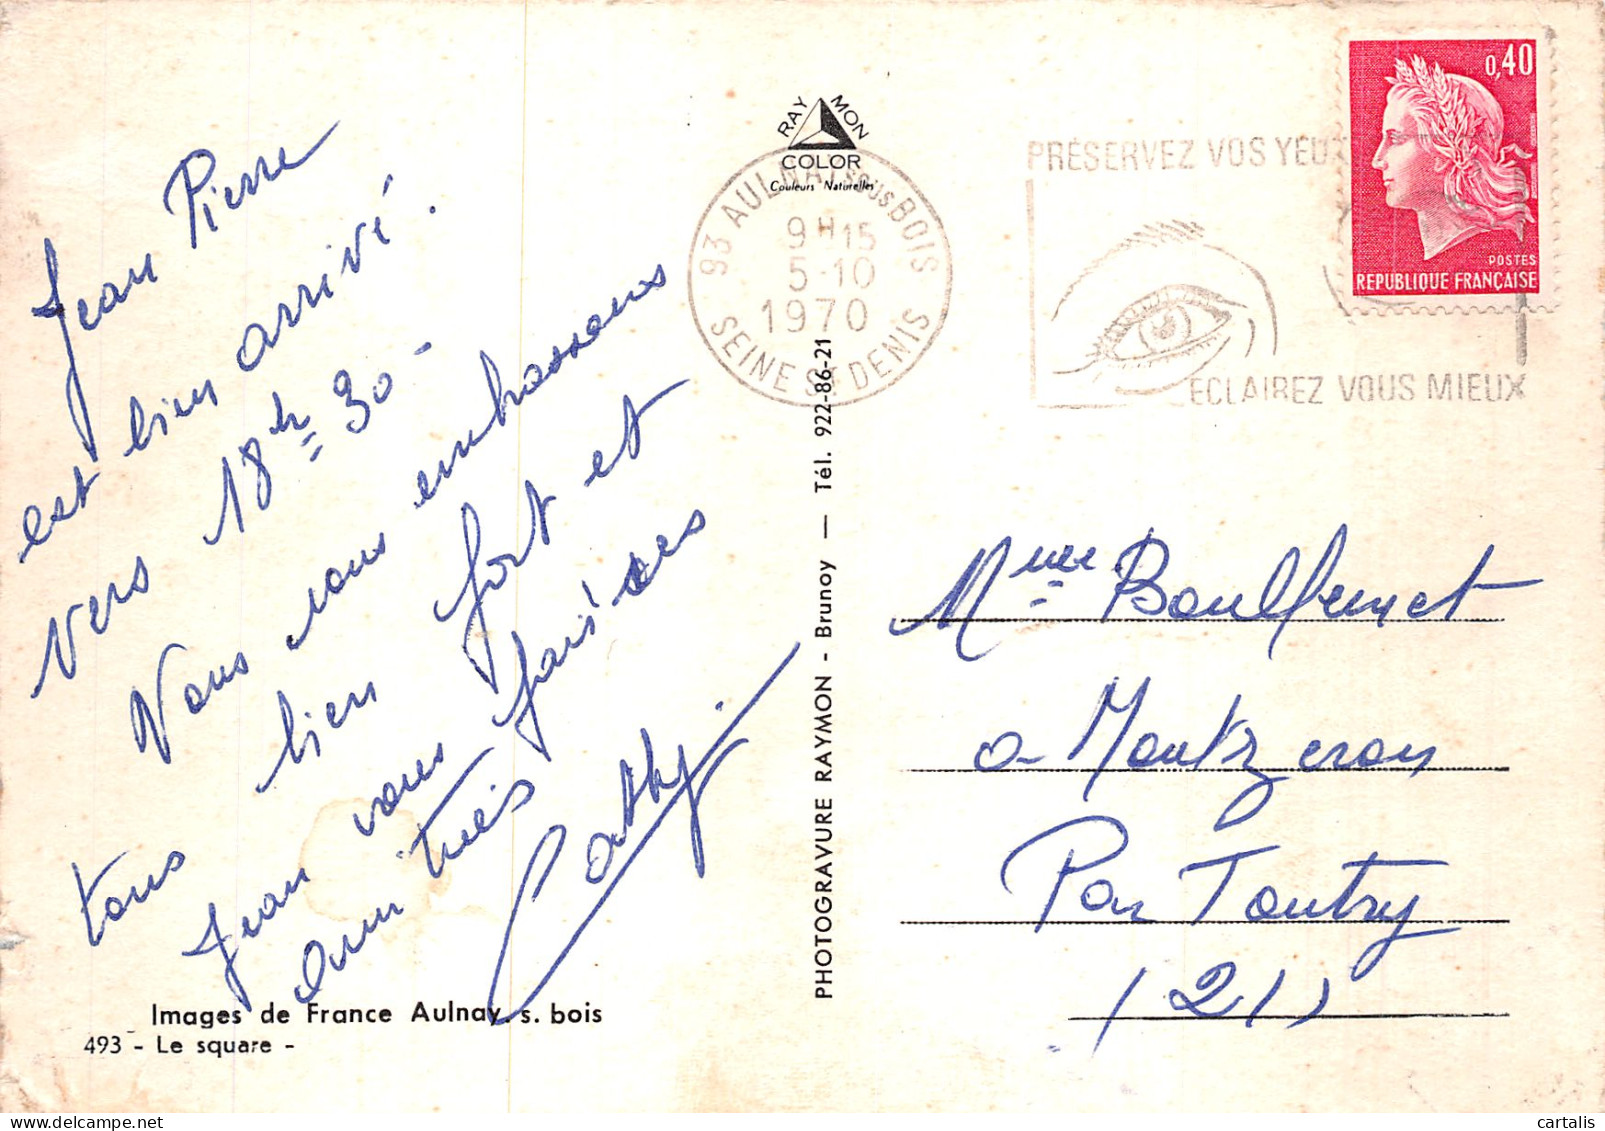 Jean Pierre
est bien arrivé.
vers 18h 30 -
Nous vous embrassons
tous bien fort et
Jean vous fais ses
amitiés
Cathy.
Images de France Aulnay. s. bois
493 - Le square -
RAYMON
COLOR
Couleurs Naturelles
93 AULNAY SOUS BOIS
9H15
5-10
1970
SEINE ST DENIS
PHOTOGRAVURE RAYMON - Brunoy — Tél. 922-86-21
PRÉSERVEZ VOS YEUX
ECLAIREZ VOUS MIEUX
0,40
POSTES
REPUBLIQUE FRANÇAISE
Mme
a Montzeron
Par Toutry
(21)
cartalis